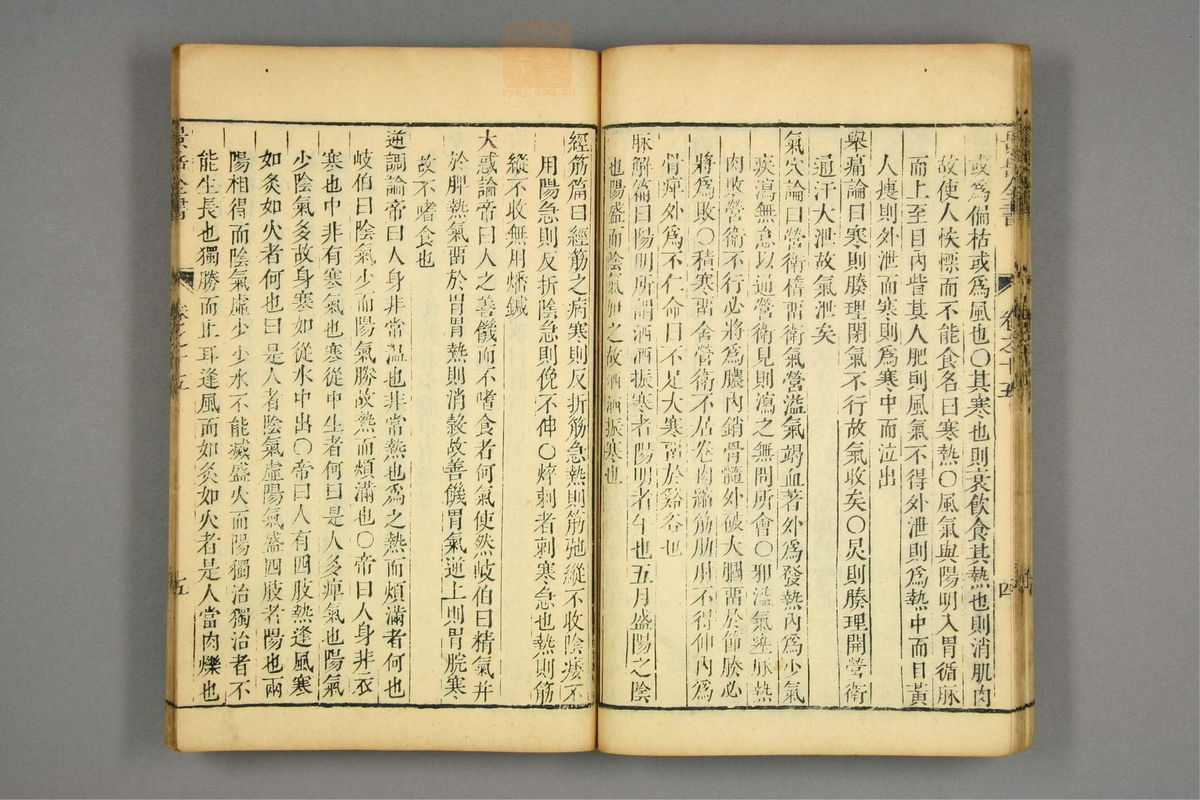 或爲偏枯或爲風也〇其寒也則衰飲食其熱也則消肌肉
故使人怢慄而不能食名曰寒熱〇風氣與陽明入胃循脉
而上至目内眥其人肥則風氣不得外泄則爲熱中而目黃
人瘦則外泄而寒則爲寒中而泣出
舉痛論曰寒則腠理閉氣不行故氣收矣〇炅則腠理開營衛
通汗大泄故氣泄矣
氣穴論曰營衛稽留衛氣營溢氣竭血著外爲發熱内爲少氣
疾瀉無怠以通營衛見則瀉之無問所會〇邪溢氣壅脉熱
肉敗營衛不行必將爲膿内銷骨髓外破大膕留於節腠必
將爲敗〇積寒留舍營衛不居卷肉縮筋肋肘不得伸内爲
骨痺外爲不仁命曰不足大寒留於谿谷也
脉解篇曰陽明所謂洒洒振寒者陽明者午也五月盛陽之陰
也陽盛而陰氣加之故洒洒振寒也
卷之十五
四
經筋篇曰經筋之病寒則反折筋急熱則筋弛縱不收陰痿不
用陽急則反折陰急則俛不伸〇焠刺者刺寒急也熱則筋
縱不收無用燔鍼
大惑論帝曰人之善饑而不嗜食者何氣使然岐伯曰精氣并
於脾熱氣留於胃胃熱則消穀故善饑胃氣逆上則胃脘寒
故不嗜食也
逆調論帝曰人身非常温也非常熱也爲之熱而煩滿者何也
岐伯曰陰氣少而陽氣勝故熱而煩滿也〇帝曰人身非衣
寒也中非有寒氣也寒從中生者何曰是人多痺氣也陽氣
少陰氣多故身寒如從水中出〇帝曰人有四肢熱逢風寒
如炙如火者何也曰是人者陰氣虛陽氣盛四肢者陽也兩
陽相得而陰氣虛少少水不能滅盛火而陽獨治獨治者不
能生長也獨勝而止耳逢風而如炙如火者是人當肉爍也
景岳全書
卷之十五
五
zysj.com.cn